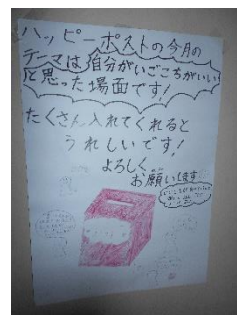 ハッピーポストの今月の
テーマは自分がいごこちがいい
と思った場面です!
たくさん入れてくれると
うれしいです!
よろしく
お願いします